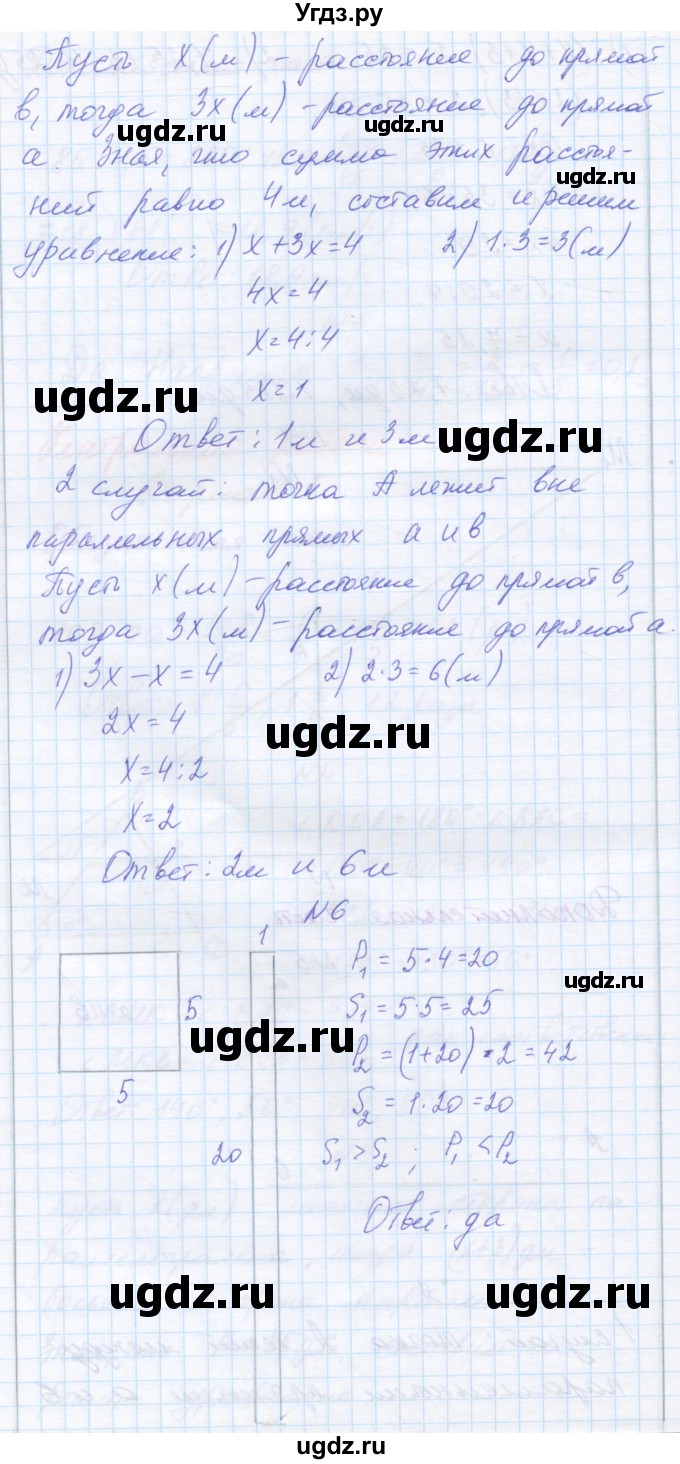 Угдз.ру
Пусть х(м) - расстояние до прямой
в, тогда 3х(м) - расстояние до прямой
ugdz.ru ugdz.ru
а. Зная, что сумма этих расстоя-
ний равно 4м, составим и решим
уравнение: 1) х+3х=4 2) 1·3=3(м)
4х=4
х=4:4
ugdz.ru х=1
Ответ: 1м и 3м ugdz.ru
2 случай: точка А лежит вне
параллельных прямых а и в
Пусть х(м) - расстояние до прямой в,
тогда 3х(м) - расстояние до прямой а.
1) 3х-х=4 2) 2·3=6(м)
2х=4 ugdz.ru
х=4:2
х=2
Ответ: 2м и 6м
N6
1 P₁ = 5·4=20
ugdz.ru
5 S₁ = 5·5=25
ugdz.ru P₂ = (1+20)·2=42
5 S₂ = 1·20=20
20 S₁ > S₂ ; P₁ < P₂
Ответ: да
ugdz.ru ugdz.ru
ugdz.ru